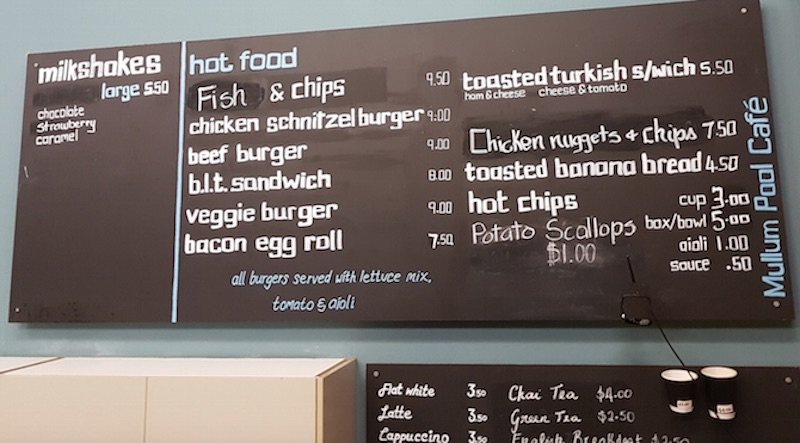 milkshakes
large 5.50
chocolate
strawberry
caramel
hot food
Fish & chips 9.50
chicken schnitzel burger 9.00
beef burger 9.00
b.l.t. sandwich 8.00
veggie burger 9.00
bacon egg roll 7.50
all burgers served with lettuce mix,
tomato & aioli
toasted turkish s/wich 5.50
ham & cheese cheese & tomato
Chicken nuggets & chips 7.50
toasted banana bread 4.50
hot chips cup 3.00
box/bowl 5.00
aioli 1.00
sauce .50
Potato Scallops
$1.00
Mullum Pool Café
Flat white 3.50 Chai Tea $4.00
Latte 3.50 Green Tea $2.50
Cappuccino 3.50 English Breakfast $2.50